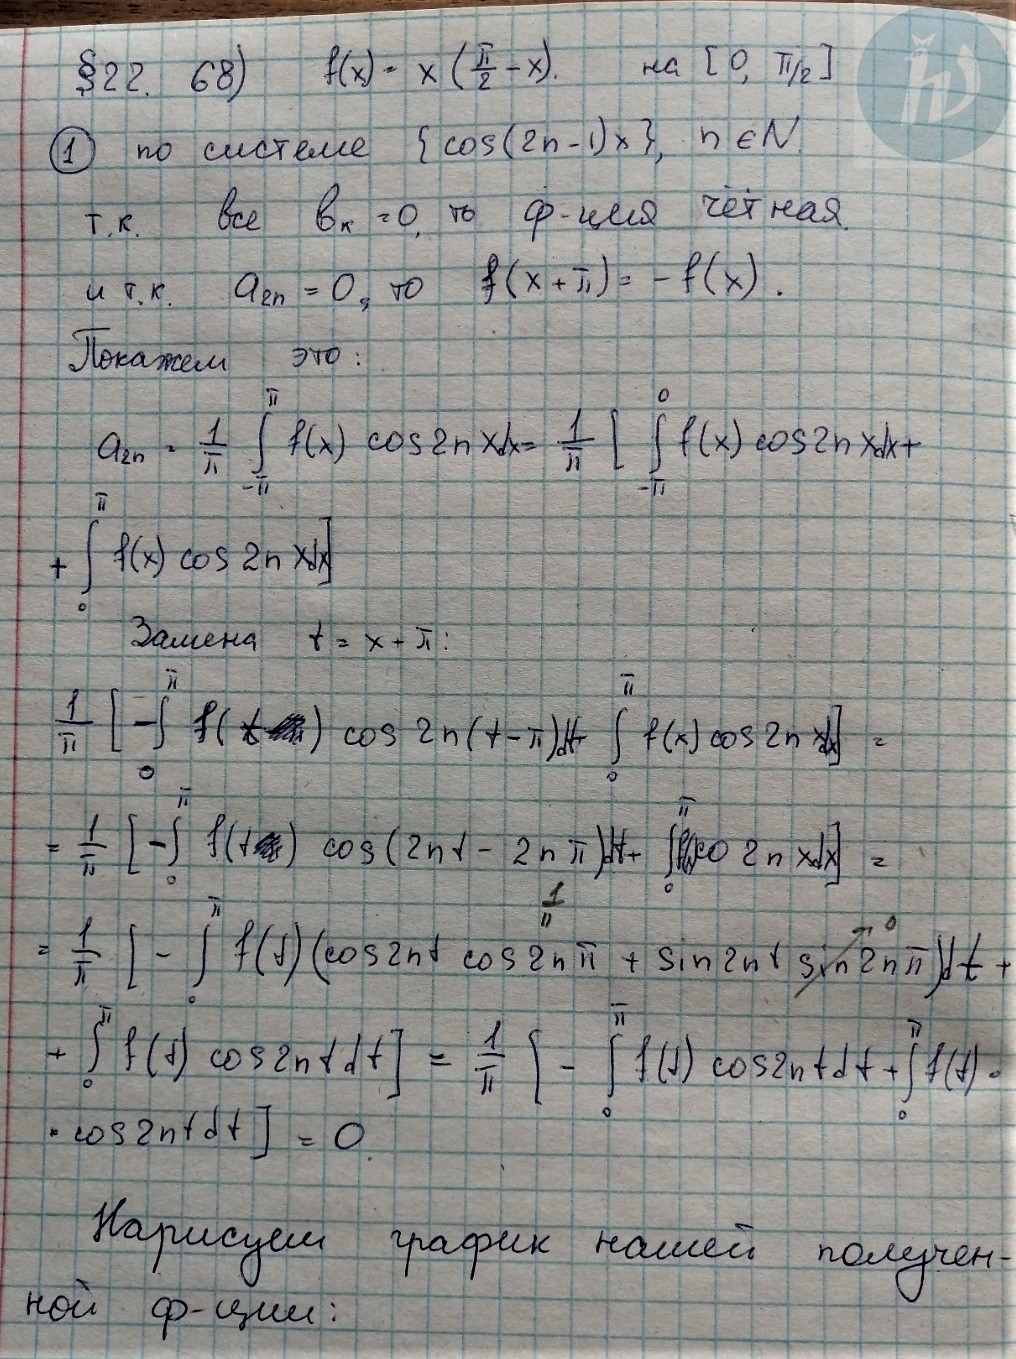 §22. 68) f(x) = x (π/2 - x). на [0, π/2]
① по системе {cos(2n-1)x}, n ∈ N.
т.к. все bₖ = 0, то ф-ция чётная.
и т.к. a₂ₙ = 0, то f(x + π) = - f(x).
Покажем это:
a₂ₙ = 1/π ∫_{-π}^{π} f(x) cos 2n x dx = 1/π [ ∫_{-π}^{0} f(x) cos 2n x dx +
+ ∫_{0}^{π} f(x) cos 2n x dx]
Замена t = x + π:
1/π [ - ∫_{0}^{π} f(t) cos 2n (t - π) dt + ∫_{0}^{π} f(x) cos 2n x dx] =
= 1/π [ - ∫_{0}^{π} f(t) cos (2nt - 2nπ) dt + ∫_{0}^{π} f(x) co 2n x dx] =
= 1/π [ - ∫_{0}^{π} f(t) (cos 2nt cos 2nπ + sin 2nt sin 2nπ) dt +
+ ∫_{0}^{π} f(t) cos 2nt dt ] = 1/π [ - ∫_{0}^{π} f(t) cos 2nt dt + ∫_{0}^{π} f(t) ·
· cos 2nt dt ] = 0.
Нарисуем график нашей получен-
ной ф-ции: